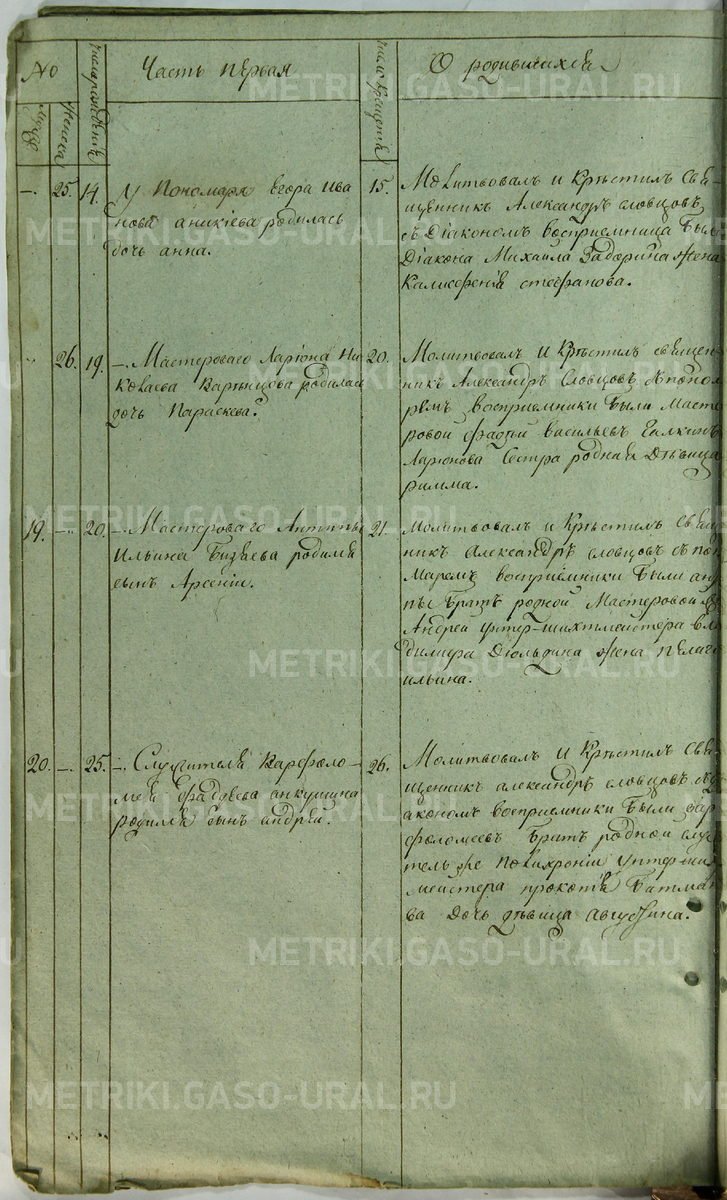 №
Мужеска
Женска
Число рождения
Часть первая
Число крещения
О родившихся
–. 25. 14.
У Пономаря Егора Ива
нова аникiева родилась
дочь анна.
15.
Молитвовалъ и Крѣстилъ Свя
щенникъ Александръ словцовъ
съ Дiакономъ восприемница Был
Дiакона Михаила Задорина жена
Калисфенiя стефанова.
26. 19.
–. Мастероваго Ларiона Ни
колаева родилась
дочь Параскева.
20.
Молитвовалъ и Крѣстилъ священ
никъ Александръ Словцовъ съ поно
ремъ восприемники Были Масте
ровой фадѣй васильевъ Галкинъ
Ларiонова Сестра родная Дѣвица
19. –. 20.
–. Мастероваго Антипы
Ильина родился
сынъ Арсенiи.
21.
Молитвовалъ и Крѣстилъ Свящ
никъ Александръ словцовъ съ пон
Маремъ восприемники Были ан
пы Братъ родной Мастеровой
Андреи унтер-шихтмейстера вла
димира жена пелаге
ильина.
20. –. 25.
–. Служителя Варфоло–
мея Фадѣева анкушина
родился сынъ андрей.
26.
Молитвовалъ и Крѣстилъ Свя
щенникъ александръ словцовъ съ д
акономъ восприемники Были вар
фоломеевъ Братъ родной слу
тель же Полихронiи унтер ших
мейстера прокопiя Батма
ва Дочь дѣвица августина.
METRIKI.GASO-URAL.RU